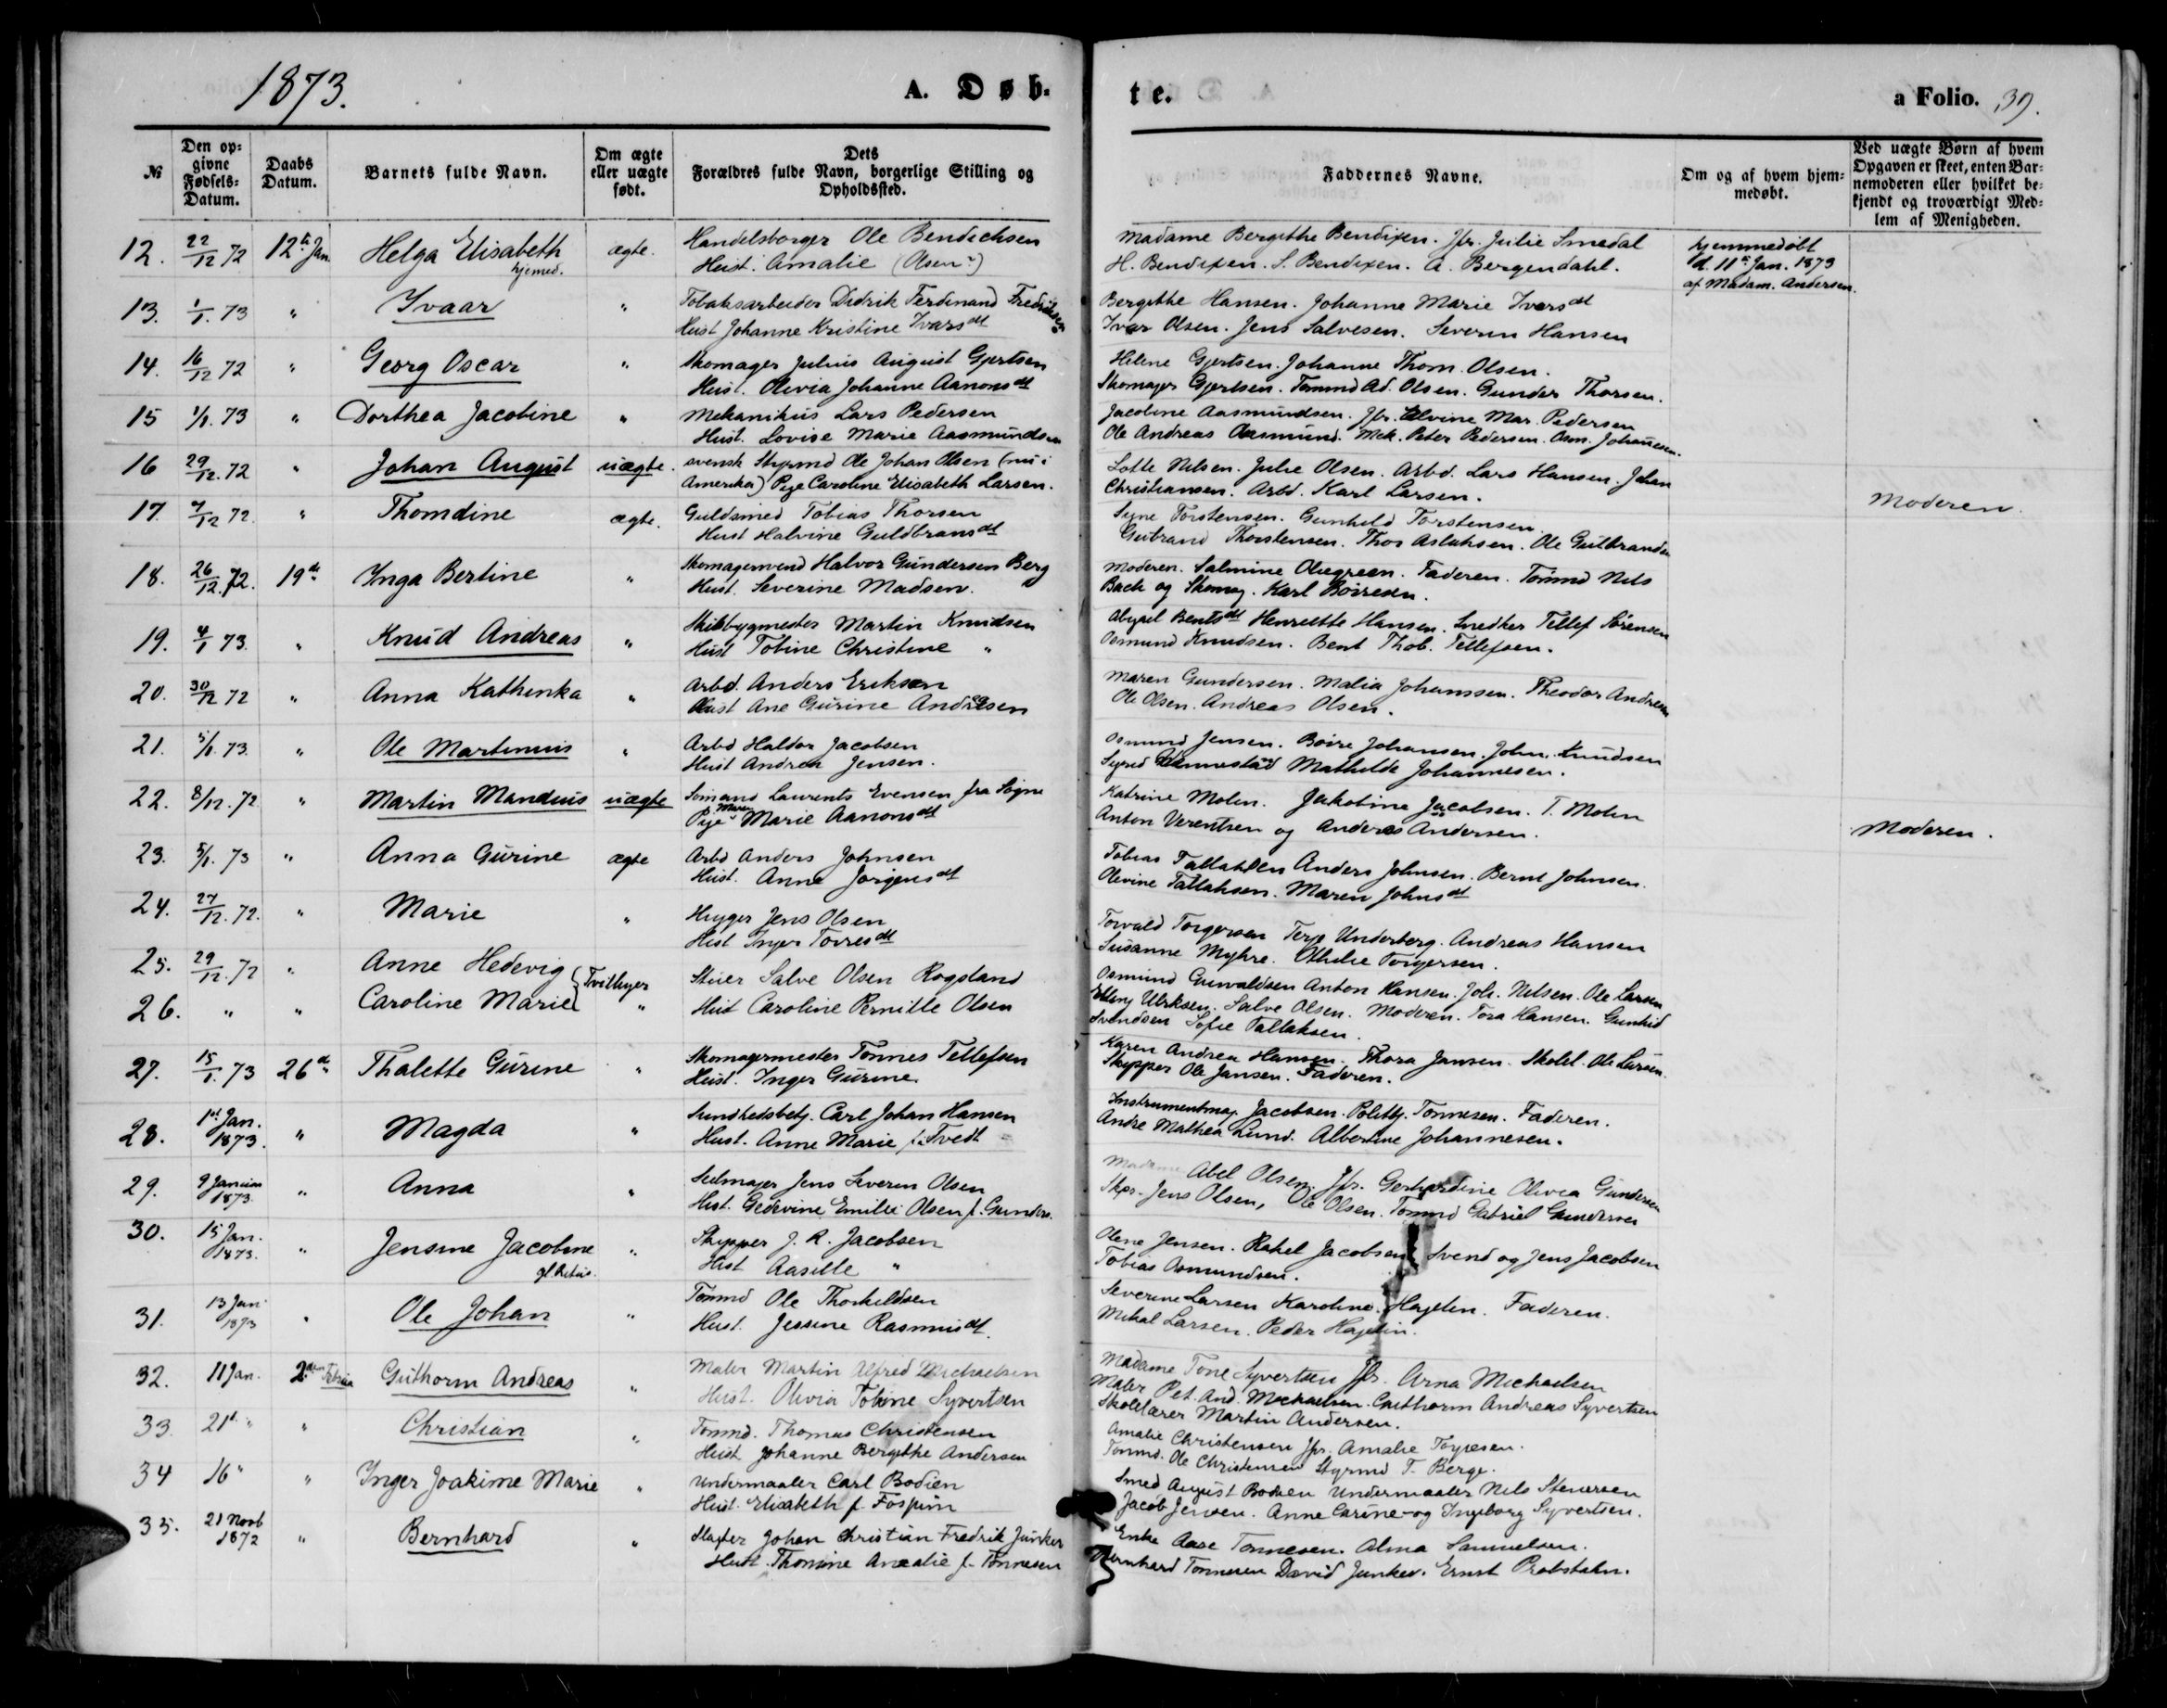 1873.
A. Døb-
te.
a Folio. 39.
№
Den op-
givne
Fødsels-
Datum.
Daabs
Datum.
Barnets fulde Navn.
Om ægte
eller uægte
født.
Dets
Forældres fulde Navn, borgerlige Stilling og
Opholdssted.
Faddernes Navne.
Om og af hvem hjem-
medøbt.
Ved uægte Børn af hvem
Opgaven er skeet, enten Bar-
nemoderen eller hvilket be-
kjendt og troværdigt Med-
lem af Menigheden.
12. 22/12 72 12te Jan. Helga Elisabeth ægte. Handelsborger Ole Bendichsen Madame Bergithe Bendixen. Jfr. Julie Smedal hjemmedøbt
hjemed. Hust. Amalie (Olsen) H. Bendixen. S. Bendixen. A. Bergendahl. d. 11te Jan. 1873
af Madam. Andersen.
13. 1/1. 73 " Ivaar " Tobaksarbeider Didrik Ferdinand Fredriksen Bergithe Hansen. Johanne Marie Ivarsdt
Hust Johanne Kristine Ivarsdt Ivar Olsen. Jens Salvesen. Severin Hansen
14. 16/12 72 " Georg Oscar " Skomager Julius August Gjertsen Helene Gjertsen. Johanne Thom. Olsen.
Hust. Olivia Johanne Aanonsdt Skomager Gjertsen. Tømmd Ad. Olsen. Gunder Thorsen.
15 1/1. 73 " Dorthea Jacobine " Mekanikus Lars Pedersen Jacobine Aasmundsen. Jfr. Elvine Mar. Pedersen
Hust. Lovise Marie Aasmundsen Ole Andreas Aasmund. Mek. Peter Pedersen. Osm. Johannesen.
16 29/12. 72 " Johan August uægte. svensk Styrmd Ole Johan Olsen (nu i Lotte Nilsen. Julie Olsen. Arbd. Lars Hansen. Johan
Amerika) Pige Caroline Elisabeth Larsen. Christiansen. Arbd. Karl Larsen. Moderen.
17. 7/12 72. " Thomdine ægte. Guldsmed Tobias Thorsen Signe Torstensen. Gunhild Torstensen
Hust Halvine Guldbransdt Gulbrand Thorstensen. Thor Aslaksen. Ole Gulbrandsen
18. 26/12. 72. 19de Inga Bertine " Skomagersvend Halvor Gundersen Berg Moderen. Salmine Olegreen. Faderen. Tømmd Nils
Hust. Severine Madsen. Bach og Skomag. Karl Børresen.
19. 4/1 73. " Knud Andreas " Skibbygmester Martin Knudsen Abigael Bentsdt Henriette Hansen. Snedker Tellef Sørensen
Hust Tobine Christine " Osmund Knudsen. Bent Thob. Tellefsen.
20. 30/12 72 " Anna Kathinka " Arbd. Anders Eriksen Maren Gundersen. Malia Johanssen. Theodor Andresen
Hust Ane Gurine Andresen Ole Olsen. Andreas Olsen.
21. 5/1. 73. " Ole Martinius " Arbd Haldor Jacobsen Osmund Jensen. Børre Johansen. John. Knudsen
Hust Andrea Jensen. Mathilde Johannesen.
22. 8/12. 72 " Martin Mandius uægte Sømand Laurents Evensen fra Søgne Katrine Molin. Jakobine Jacobsen. T. Molin
Pige Maren Marie Aanonsdt Anton Verentsen og Anders Andersen. Moderen.
23. 5/1. 73 " Anna Gurine ægte Arbd Anders Johnsen Tobias Tallaksen Anders Johnsen. Bernt Johnsen.
Hust. Anne Jørgensdt Olevine Tallaksen. Maren Johnsdt
24. 27/12. 72. " Marie " Jens Olsen Torvald Torgersen Terje Underberg. Andreas Hansen
Hust Inger Torresdt Susanne Myhre. Othilie Torgersen.
25. 29/12. 72 " Anne Hedevig Tvillinger Stuer Salve Olsen Rogstand Osmund Gunvaldsen Anton Hansen. Joh. Nilsen. Ole Larsen
26. " " Caroline Marie " Hust Caroline Pernille Olsen Elling Ulriksen. Salve Olsen. Moderen. Tora Hansen. Gunhild
Svendsen Sofie Tallaksen.
27. 15/1. 73 26de Thalette Gurine " Skomagermester Tønnes Tellefsen Karen Andrea Hansen. Thora Jansen. Skolel. Ole Larsen.
Hust. Inger Gurine. Skipper Ole Jansen. Faderen.
28. 1st Jan. 1873. " Magda " Sundhedsbetj. Carl Johan Hansen Instrumentmag. Jacobsen. Politbj. Tønnesen. Faderen.
Hust. Anne Marie f. Tvedt Andre Mathea Lund. Albertine Johannesen.
29. 9 Januar 1873. " Anna " Seilmager Jens Severin Olsen Madame Abel Olsen. Jfr. Gerhardine Olivea Gundersen
Hust. Gedevine Emilie Olsen f. Gunders. Skpr. Jens Olsen, Ole Olsen. Tømmd Gabriel Gundersen
30. 15 Jan. 1873. " Jensine Jacobine " Skipper J. R. Jacobsen Olene Jensen. Rakel Jacobsen Svend og Jens Jacobsen
Hust Aasille " Tobias Osmundsen.
31. 13 Jan. 1873 " Ole Johan " Tømmd Ole Thorkildsen Severine Larsen Karoline Hagelin. Faderen.
Hust. Jessine Rasmusdt. Mikal Larsen. Peder Hagelin.
32. 11 Jan. 2den Februa Guthorm Andreas " Maler Martin Alfred Michaelsen Madame Tone Syvertsen Jfr. Arna Michaelsen
Hust. Olivia Tobine Syvertsen Maler Pet. And. Michaelsen. Guthorm Andreas Syvertsen
Skolelærer Martin Andersen.
33. 21d " " Christian " Tømmd. Thomas Christensen Amalie Christensen Jfr. Amalie
Hust Johanne Bergithe Andersen Tømmd. Ole Christensen Styrmd T. Berge.
34 16 " " Inger Joakime Marie " Undermaaler Carl Bodien Smed August Bodien Undermaaler Nils Stenersen
Hust. Elisabeth f. Jacob Jensen. Anne Carine og Ingeborg Syvertsen.
35. 21 Novb 1872 " Bernhard " Slagter Johan Christian Fredrik Junker Enke Aase Tønnesen. Alma Samuelsen.
Hust. Thomine Amalie f. Tønnesen Bernhard Tønnesen David Junker. Ernst Probstahn.